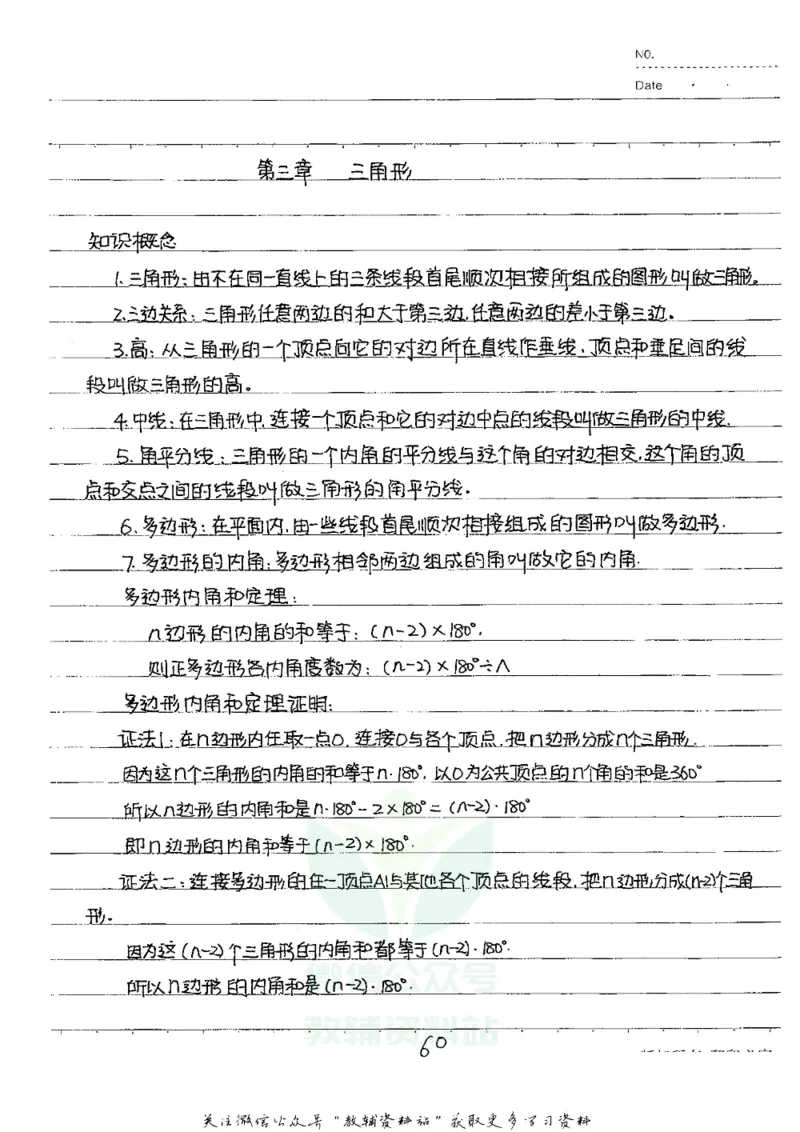 NO.
Date
第三章 三角形
知识概念
1.三角形：由不在同一直线上的三条线段首尾顺次相接所组成的图形叫做三角形。
2.三边关系：三角形任意两边的和大于第三边,任意两边的差小于第三边。
3.高：从三角形的一个顶点向它的对边所在直线作垂线,顶点和垂足间的线
段叫做三角形的高。
4.中线：在三角形中,连接一个顶点和它的对边中点的线段叫做三角形的中线.
5.角平分线：三角形的一个内角的平分线与这个角的对边相交,这个角的顶
点和交点之间的线段叫做三角形的角平分线.
6.多边形：在平面内,由一些线段首尾顺次相接组成的图形叫做多边形.
7.多边形的内角：多边形相邻两边组成的角叫做它的内角.
多边形内角和定理：
n边形的内角的和等于：(n-2)×180°.
则正多边形各内角度数为：(n-2)×180°÷n
多边形内角和定理证明：
证法1：在n边形内任取一点O,连接O与各个顶点,把n边形分成n个三角形.
因为这n个三角形的内角的和等于n·180°,以O为公共顶点的n个角的和是360°
所以n边形的内角和是n·180°-2×180°=(n-2)·180°
即n边形的内角和等于(n-2)×180°.
证法二：连接多边形的任一顶点A1与其他各个顶点的线段,把n边形分成(n-2)个三角
形.
因为这(n-2)个三角形的内角和都等于(n-2)·180°.
所以n边形的内角和是(n-2)·180°.
微信公众号
教辅资料站
60
关注微信公众号"教辅资料站"获取更多学习资料